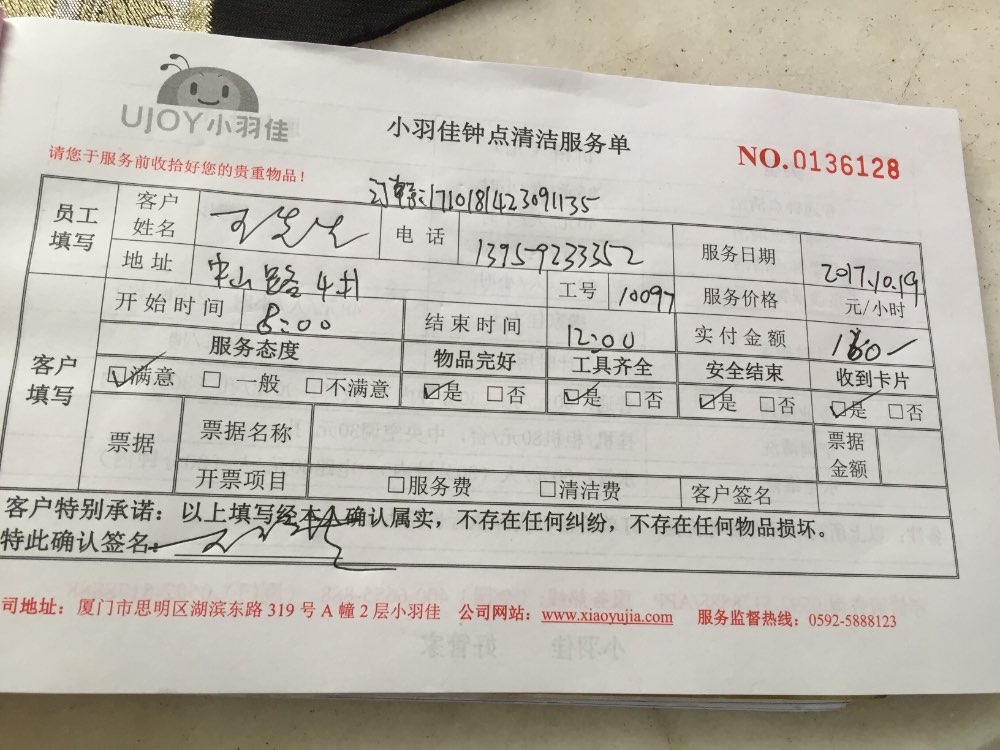 UJOY小羽佳
小羽佳钟点清洁服务单
NO.0136128
请您于服务前收拾好您的贵重物品！
171018142309113 5
员工填写 客户姓名 王先生 电话 13959233352 服务日期 2017.10.19
地址 中山路4# 工号 10097 服务价格 元/小时
客户填写 开始时间 8:00 结束时间 12:00 实付金额
服务态度 物品完好 工具齐全 安全结束 收到卡片
☑满意 □一般 □不满意 ☑是 □否 ☑是 □否 ☑是 □否 ☑是 □否
票据 票据名称 票据金额
开票项目 □服务费 □清洁费 客户签名
客户特别承诺：以上填写经本人确认属实，不存在任何纠纷，不存在任何物品损坏。
特此确认签名:
司地址：厦门市思明区湖滨东路 319 号 A 幢 2 层小羽佳 公司网站：www.xiaoyujia.com 服务监督热线：0592-5888123